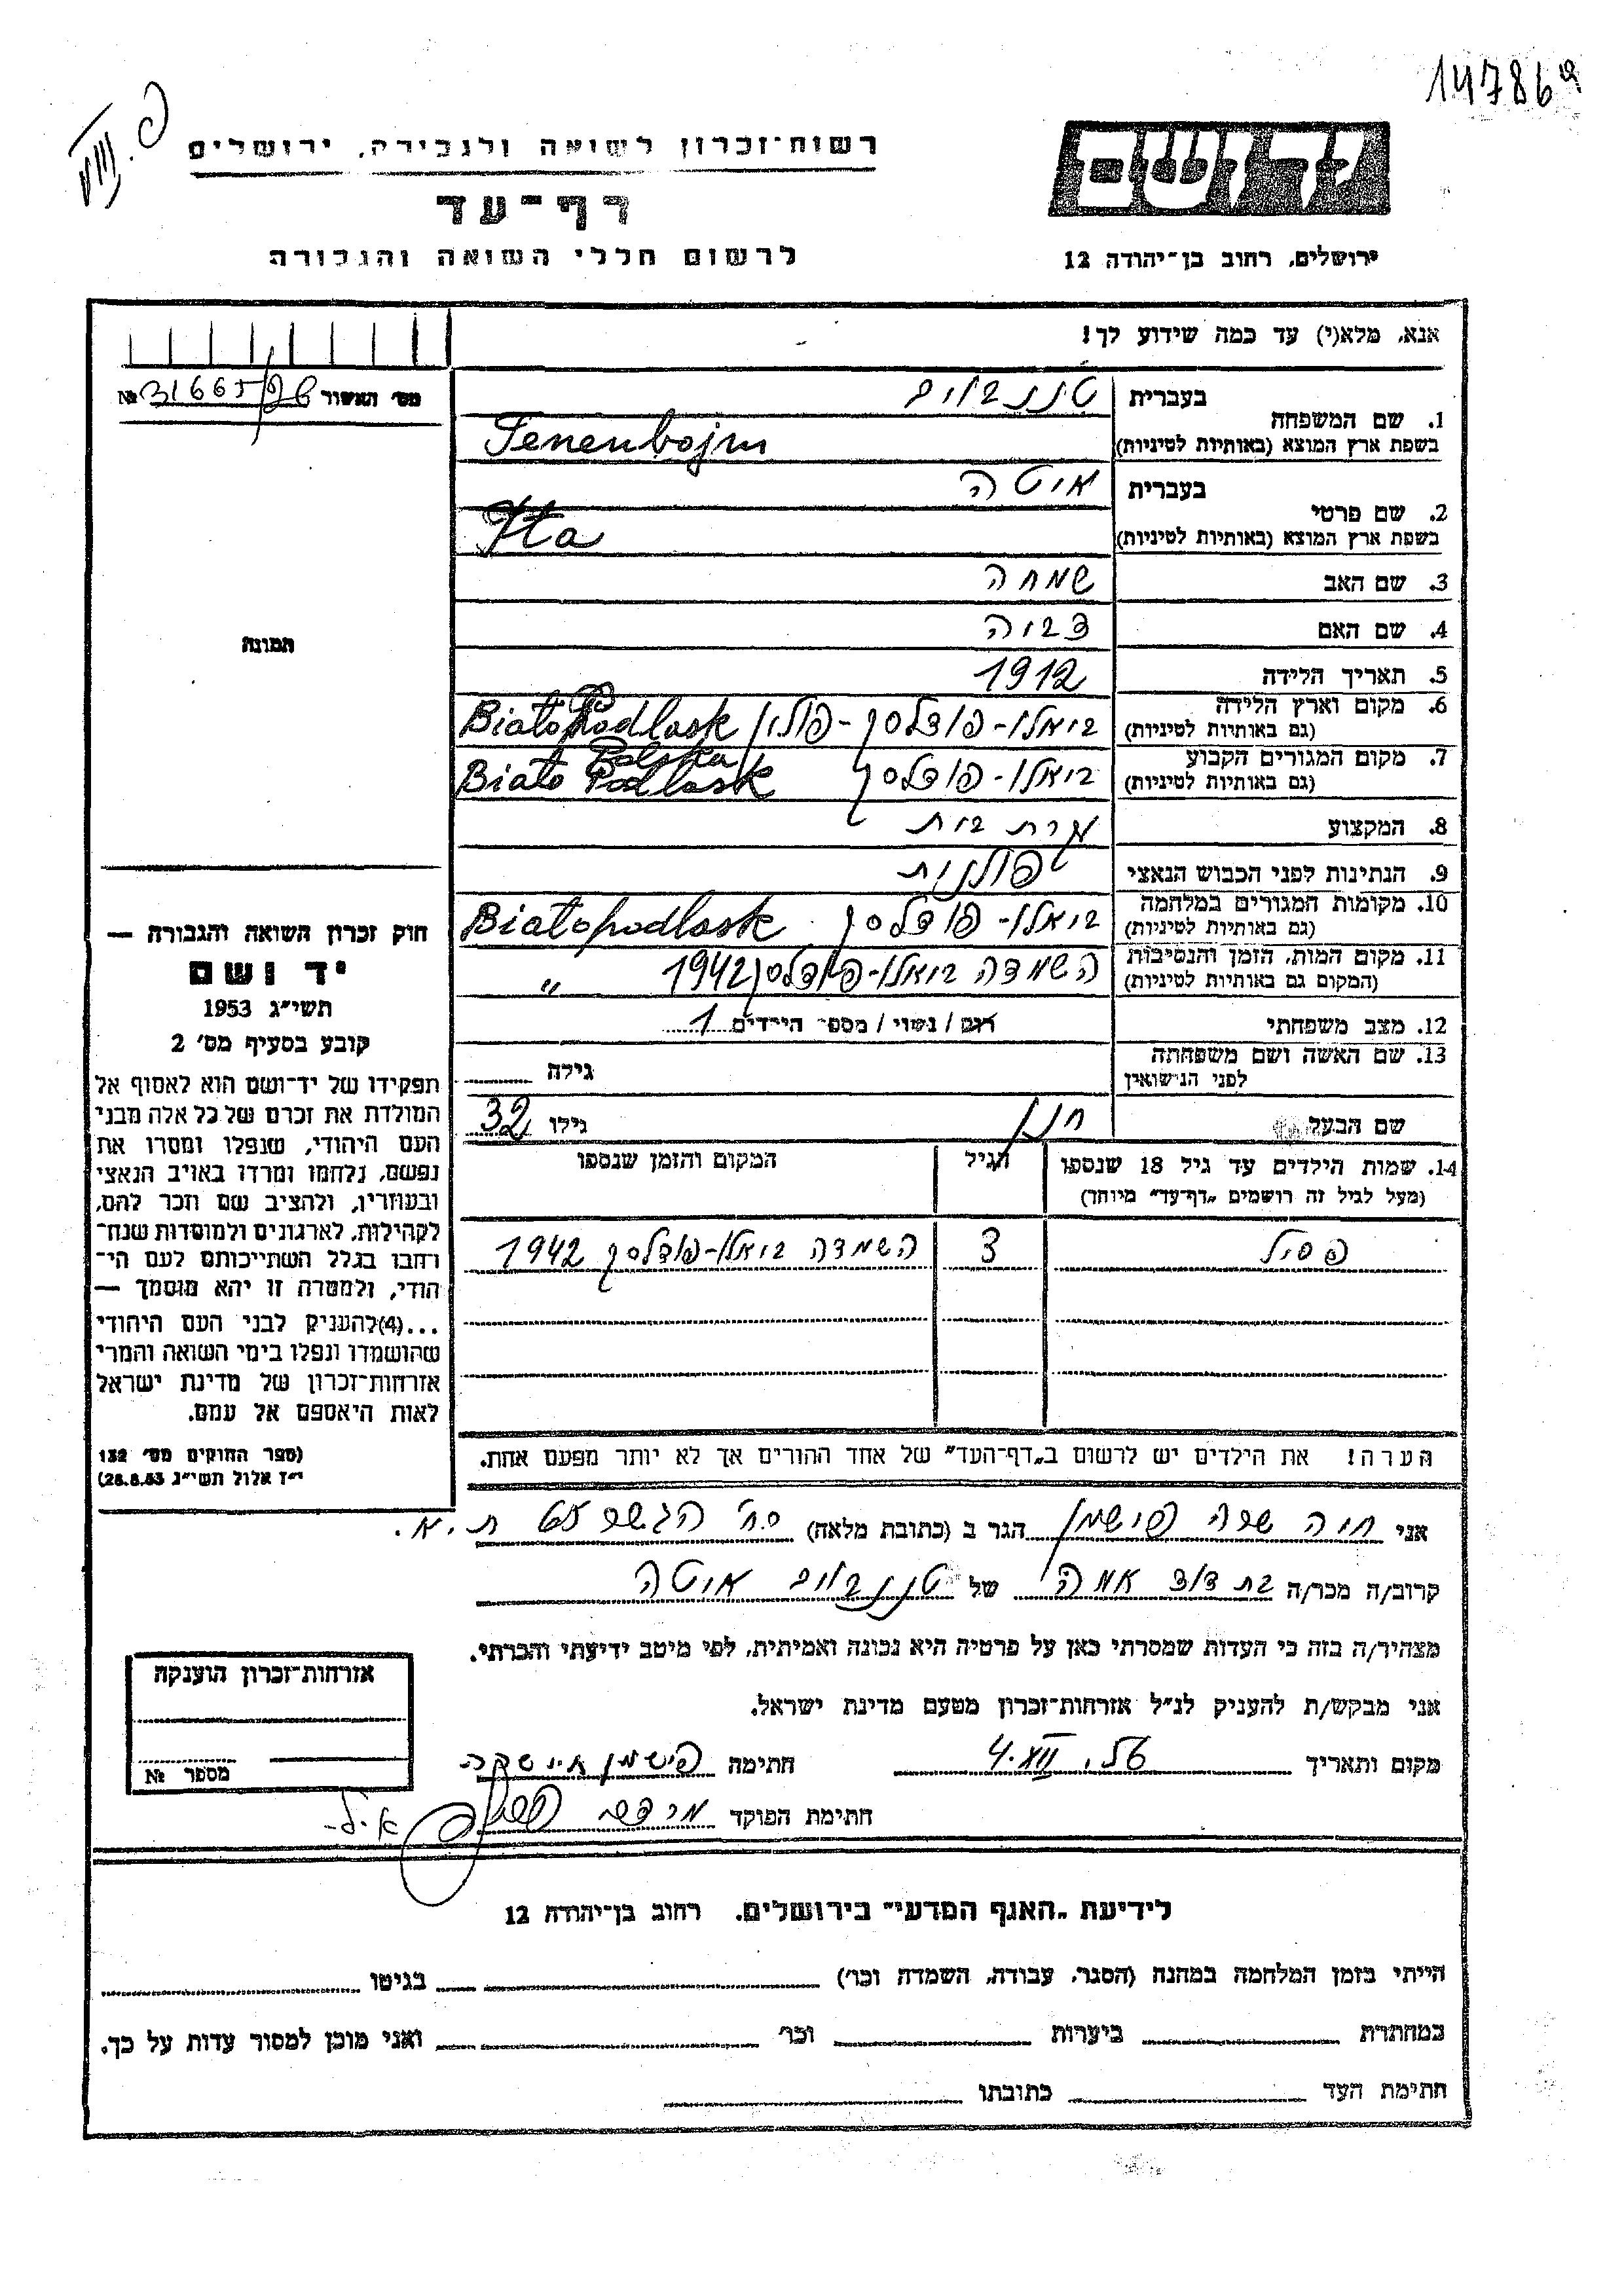 147869
VIII. פ
רשות־זכרון לשואה ולגבורה, ירושלים
דף־עד
לרשום חללי השואה והגבורה
יד ושם
ירושלים, רחוב בן־יהודה 12
אנא, מלא(י) עד כמה שידוע לך!
מס׳ האשור № 31665/
1. שם המשפחה בעברית טננבוים
בשפת ארץ המוצא (באותיות לטיניות) Tenenbojm
2. שם פרטי בעברית איטה
בשפת ארץ המוצא (באותיות לטיניות) Ita
3. שם האב שמחה
4. שם האם
5. תאריך הלידה 1912
6. מקום וארץ הלידה ביאלו-פודלסק-פולין Biato Podlask
(גם באותיות לטיניות) Polska
7. מקום המגורים הקבוע ביאלו-פודלסק Biato Podlask
(גם באותיות לטיניות)
8. המקצוע עקרת בית
9. הנתינות לפני הכבוש הנאצי פולנית
10. מקומות המגורים במלחמה ביאלו-פודלסק Biatopodlask
(גם באותיות לטיניות)
11. מקום המות, הזמן והנסיבות השמדה ביאלו-פודלסק 1942 "
(המקום גם באותיות לטיניות)
12. מצב משפחתי רוק / נשוי / מספר הילדים 1
13. שם האשה ושם משפחתה גילה
לפני הנישואין
שם הבעל חנן גילו 32
14. שמות הילדים עד גיל 18 שנספו הגיל המקום והזמן שנספו
(מעל לגיל זה רושמים „דף־עד" מיוחד)
פסיל 3 השמדה ביאלו-פודלסק 1942
הערה! את הילדים יש לרשום ב„דף־העד" של אחד ההורים אך לא יותר מפעם אחת.
תמונה
חוק זכרון השואה והגבורה —
יד ושם
תשי״ג 1953
קובע בסעיף מס׳ 2
תפקידו של יד־ושם הוא לאסוף אל
המולדת את זכרם של כל אלה מבני
העם היהודי, שנפלו ומסרו את
נפשם, נלחמו ומרדו באויב הנאצי
ובעוזריו, ולהציב שם וזכר להם,
לקהילות, לארגונים ולמוסדות שנח־
רבו בגלל השתייכותם לעם הי־
הודי, ולמטרה זו יהא מוסמך —
...(4) להעניק לבני העם היהודי
שהושמדו ונפלו בימי השואה והמרי
אזרחות־זכרון של מדינת ישראל
לאות היאספם אל עמם.
(ספר החוקים מס׳ 132
י״ז אלול תשי״ג 28.8.53)
אני חיה שרה פישמן הגר ב (כתובת מלאה) רח׳ ת.א.
קרוב/ה מכר/ה בת דוד אמה של טננבוים איטה
מצהיר/ה בזה כי העדות שמסרתי כאן על פרטיה היא נכונה ואמיתית, לפי מיטב ידיעתי והכרתי.
אני מבקש/ת להעניק לנ״ל אזרחות־זכרון מטעם מדינת ישראל.
מקום ותאריך 4.XII.56 חתימה פישמן
חתימת הפוקד
אזרחות־זכרון הוענקה
מספר №
לידיעת „האגף המדעי" בירושלים, רחוב בן־יהודה 12
הייתי בזמן המלחמה במחנה (הסגר, עבודה, השמדה וכו׳) בגיטו
במחתרת ביערות וכו׳ ואני מוכן למסור עדות על כך.
חתימת העד כתובתו